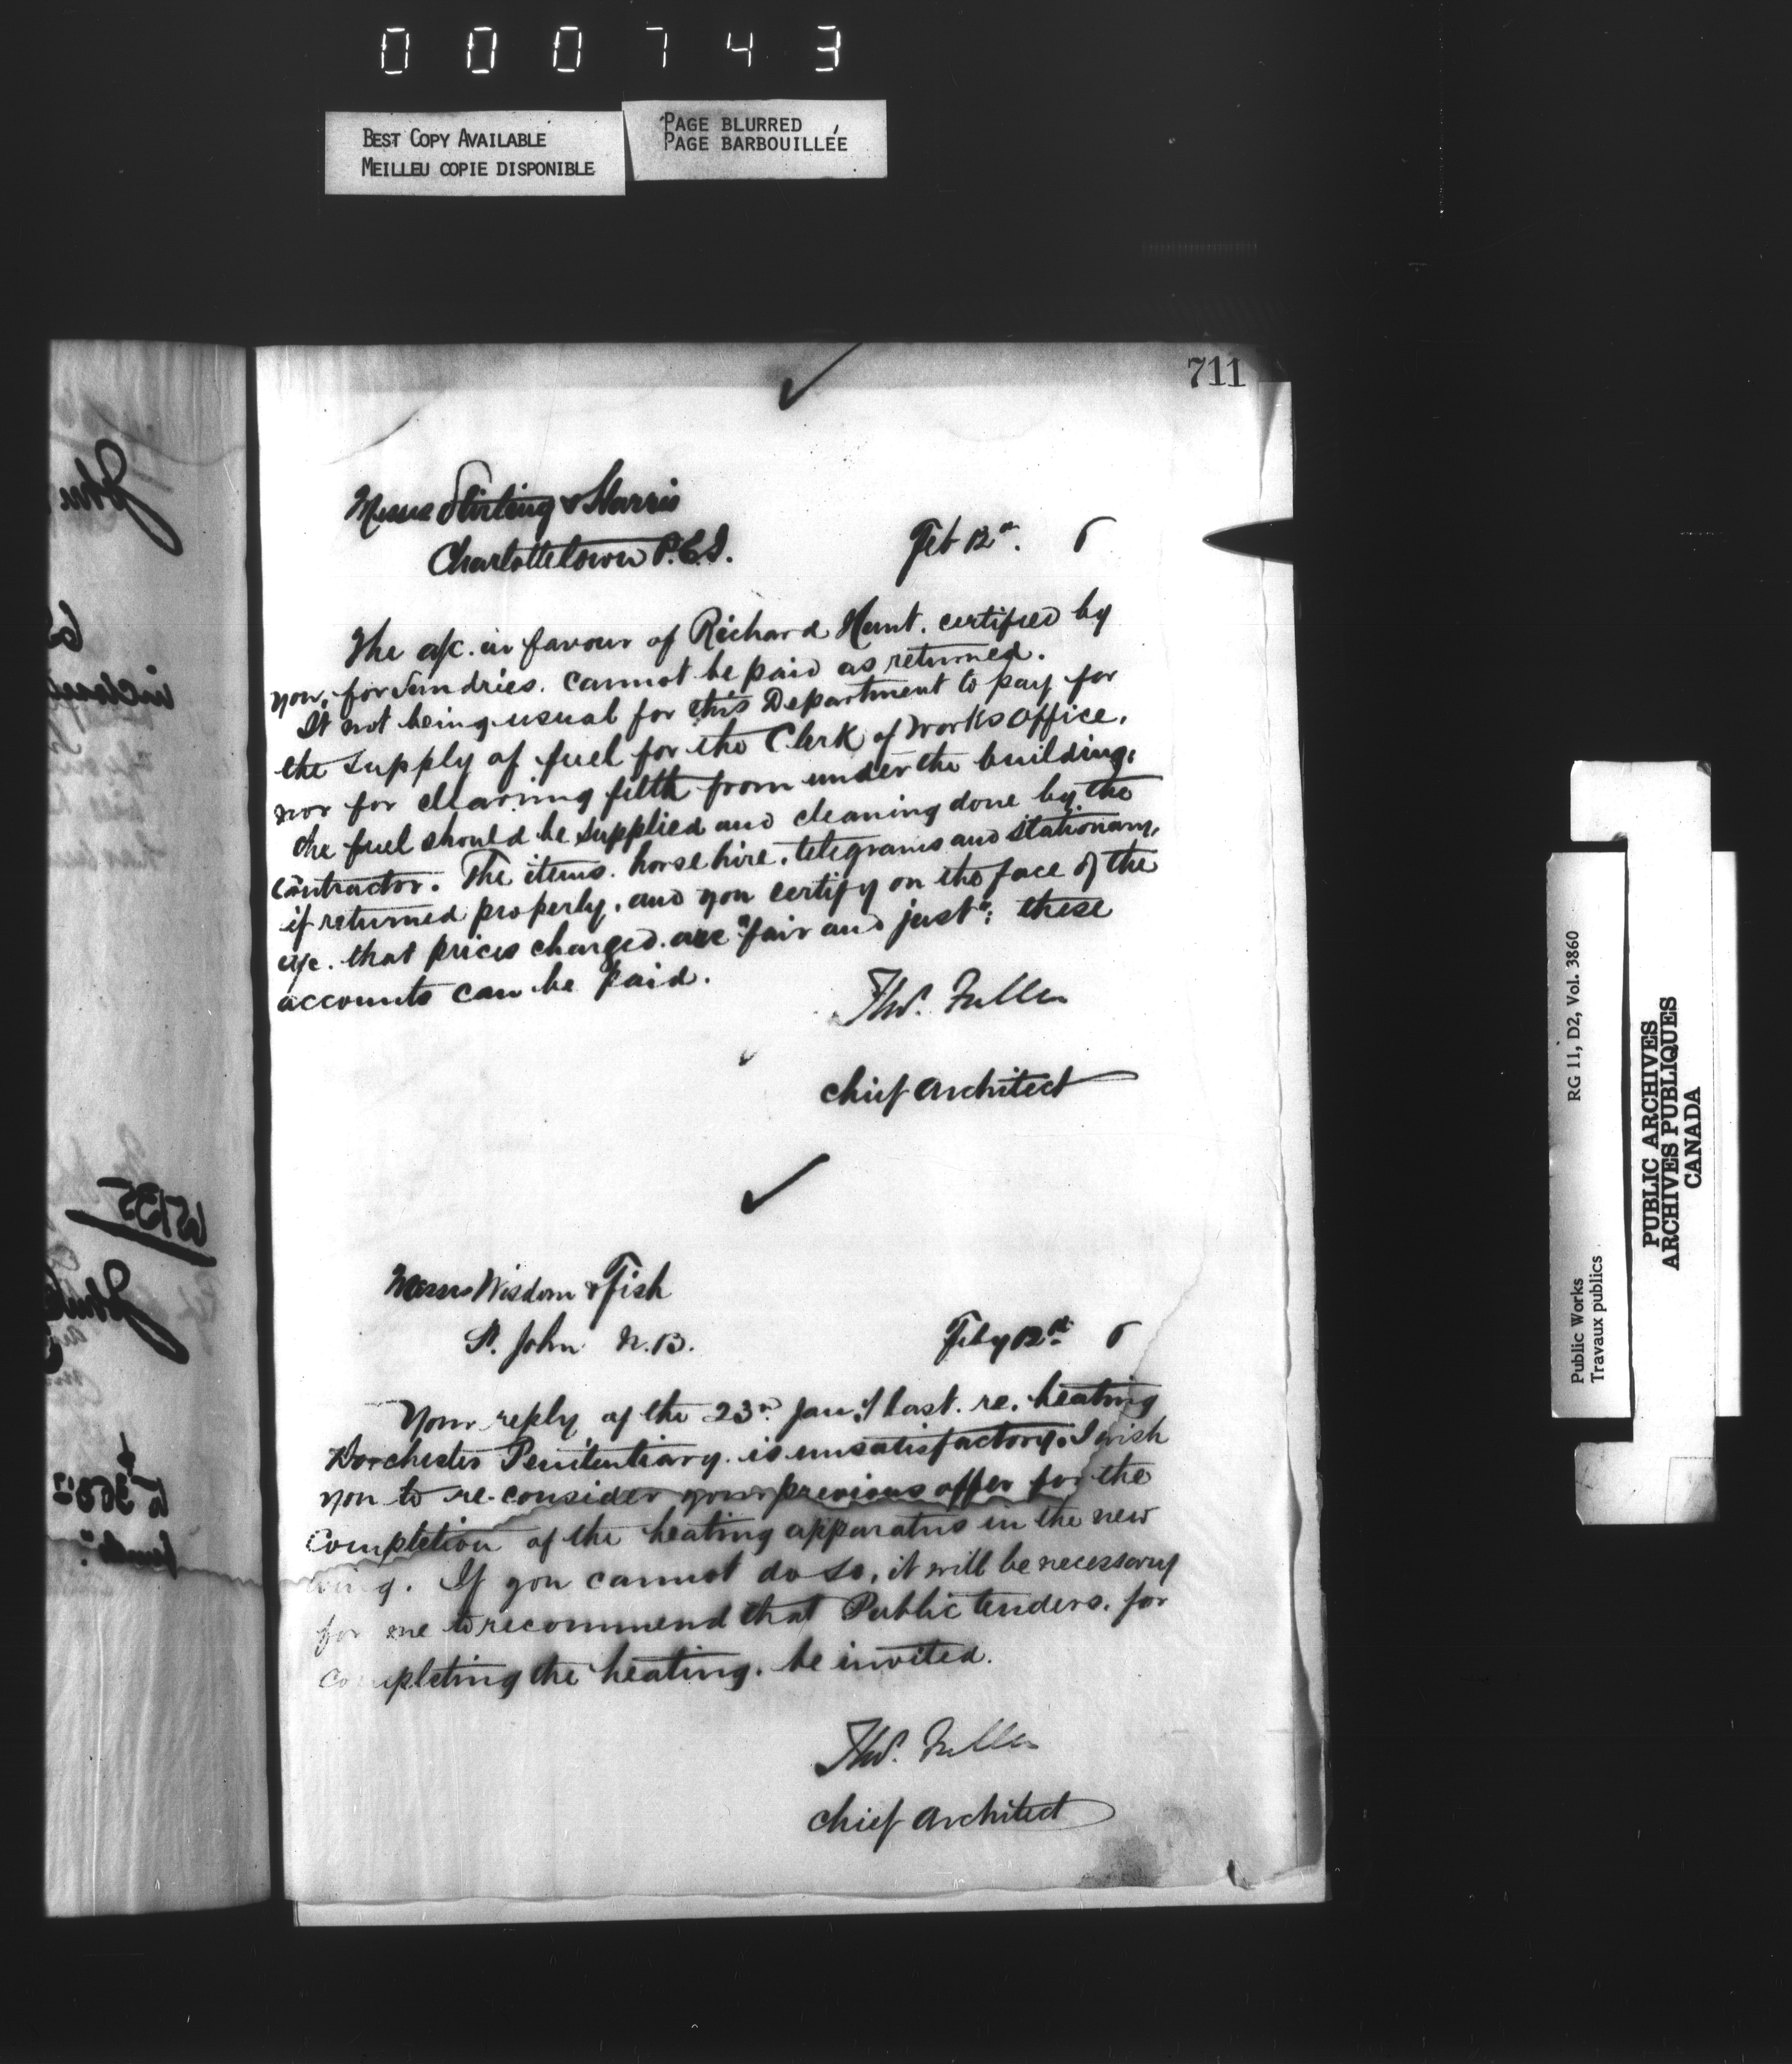 000743
BEST COPY AVAILABLE
MEILLEU COPIE DISPONIBLE
PAGE BLURRED
PAGE BARBOUILLÉE
711
Messrs Stirling & Harris
Charlottetown P.E.I.
Feb 12th. 6
The a/c. in favour of Richard Hunt. certified by
you, for Sundries. cannot be paid as returned.
It not being usual for this Department to pay for
the supply of fuel for the Clerk of Works Office,
nor for cleaning filth from under the building,
the fuel should be supplied and cleaning done by the
contractor. The items. horse hire, telegrams and stationary,
if returned properly, and you certify on the face of the
a/c. that prices charged are "fair and just"; these
accounts can be paid.
Thos. Fuller
Chief Architect
Messrs Wisdom & Fish
St. John N.B.
Feby 12th 6
Your reply of the 23rd Jany last. re. heating
Dorchester Penitentiary. is unsatisfactory. I wish
you to re-consider your previous offer for the
Completion of the heating apparatus in the new
wing. If you cannot do so, it will be necessary
for me to recommend that Public tenders, for
completing the heating. be invited.
Thos. Fuller
Chief Architect
John
Public Works
Travaux publics
RG 11, D2, Vol. 3860
PUBLIC ARCHIVES
ARCHIVES PUBLIQUES
CANADA